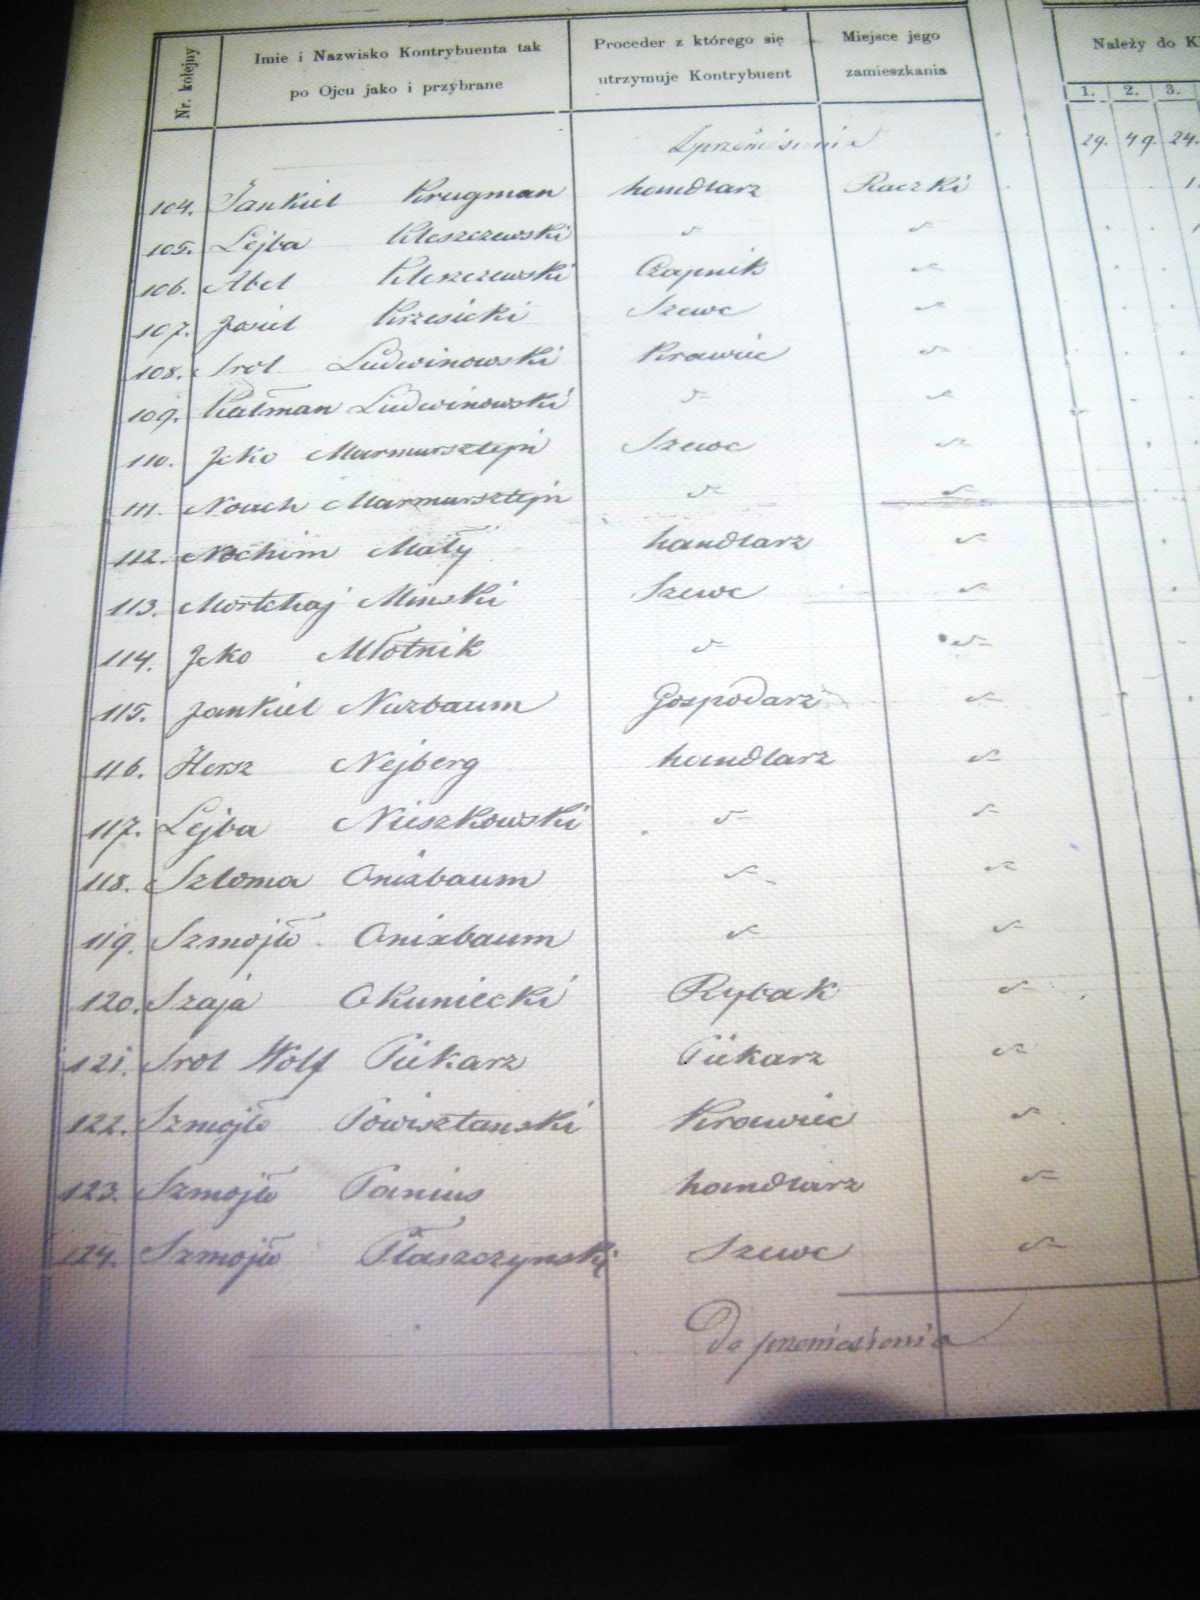 Nr. kolejny
Imie i Nazwisko Kontrybuenta tak
po Ojcu jako i przybrane
Proceder z którego się
utrzymuje Kontrybuent
Miejsce jego
zamieszkania
Należy do Kl
1. 2. 3.
Z przeniesienia 29. 49. 24.
104. Jankiel Krugman handlarz Raczki 1
105. Lejba Kleszczewski " "
106. Abel Kleszczewski Czapnik "
107. Josiel Krzesicki Szewc "
108. Srol Ludwinowski Krawiec "
109. Kałman Ludwinowski " "
110. Icko Marmursztejn Szewc "
111. Noach Marmursztejn " "
112. Nochim Mały handlarz "
113. Mortchaj Minski Szewc "
114. Icko Młotnik " "
115. Jankiel Nuzbaum Gospodarz "
116. Hersz Nejberg handlarz "
117. Lejba Nieszkowski " "
118. Szloma Onixbaum " "
119. Szmojło Onixbaum " "
120. Szaja Okuniecki Rybak "
121. Srol Wolf Piekarz Piekarz "
122. Szmojło Powisztanski Krawiec "
123. Szmojło Panius handlarz "
124. Szmojło Płaszczynski Szewc "
Do przeniesienia